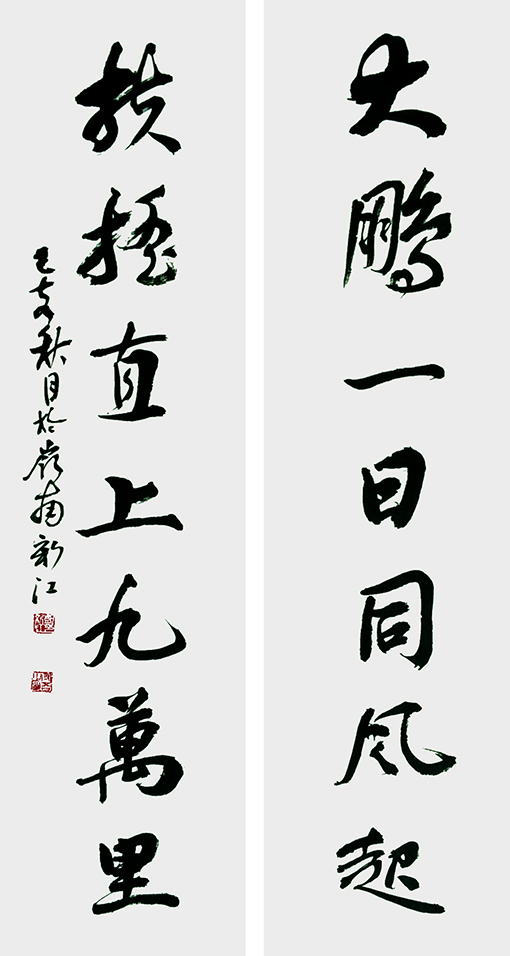 大鹏一日同风起
扶摇直上九萬里
己亥秋月於嶺南新江